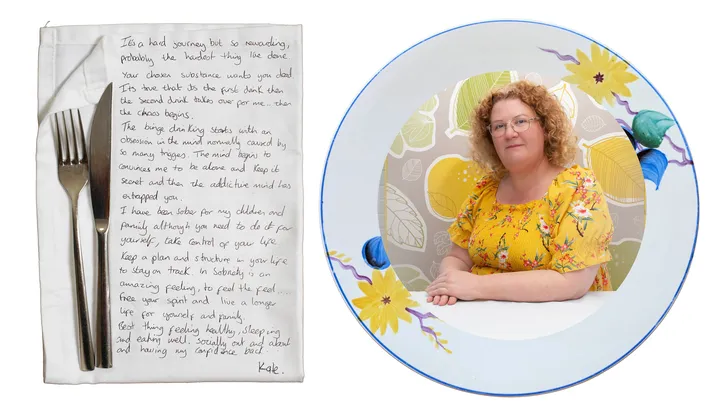 It's a hard journey but so rewarding,
probably the hardest thing I've done
Your chosen substance wants you dead.
It's true that it's the first drink then
the second drink takes over for me... then
the chaos begins.
The binge drinking starts with an
obsession in the mind normally caused by
so many triggers. The mind begins to
convinces me to be alone and keep it
secret and then the addictive mind has
entrapped you.
I have been sober for my children and
family although you need to do it for
yourself, take control of your life.
Keep a plan and structure in your life
to stay on track. In Sobriety is an
amazing feeling, to feel the feel....
Free your spirit and live a longer
life for yourself and family.
Best thing feeling healthy, sleeping
and eating well. Socially out and about
and having my confidence back.
Kate.